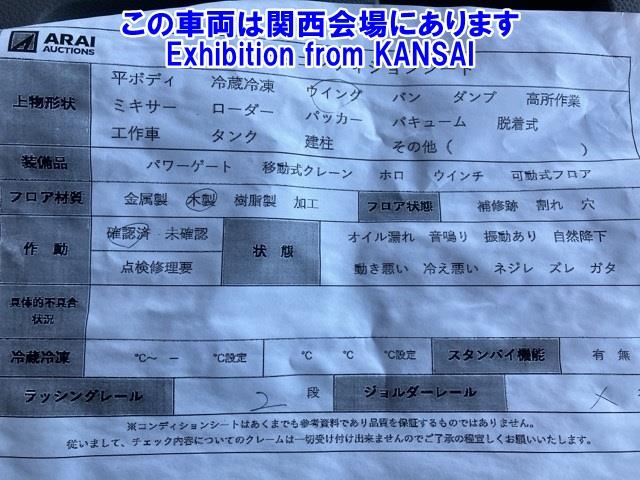 この車両は関西会場にあります
Exhibition from KANSAI
ARAI
AUCTIONS
ディションシート
上物形状
平ボディ 冷蔵冷凍 ウイング バン ダンプ 高所作業
ミキサー ローダー パッカー バキューム 脱着式
工作車 タンク 建柱 その他( )
装備品 パワーゲート 移動式クレーン ホロ ウインチ 可動式フロア
フロア材質 金属製 木製 樹脂製 加工 フロア状態 補修跡 割れ 穴
作動 確認済 未確認 状態 オイル漏れ 音鳴り 振動あり 自然降下
点検修理要 動き悪い 冷え悪い ネジレ ズレ ガタ
具体的不具合
状況
冷蔵冷凍 ℃～ ー ℃設定 ℃ ℃ ℃設定 スタンバイ機能 有 無
ラッシングレール 2 段 ジョルダーレール ×
※コンディションシートはあくまでも参考資料であり品質を保証するものではありません。
従いまして、チェック内容についてのクレームは一切受け付け出来ませんのでご了承の程宜しくお願いいたします。